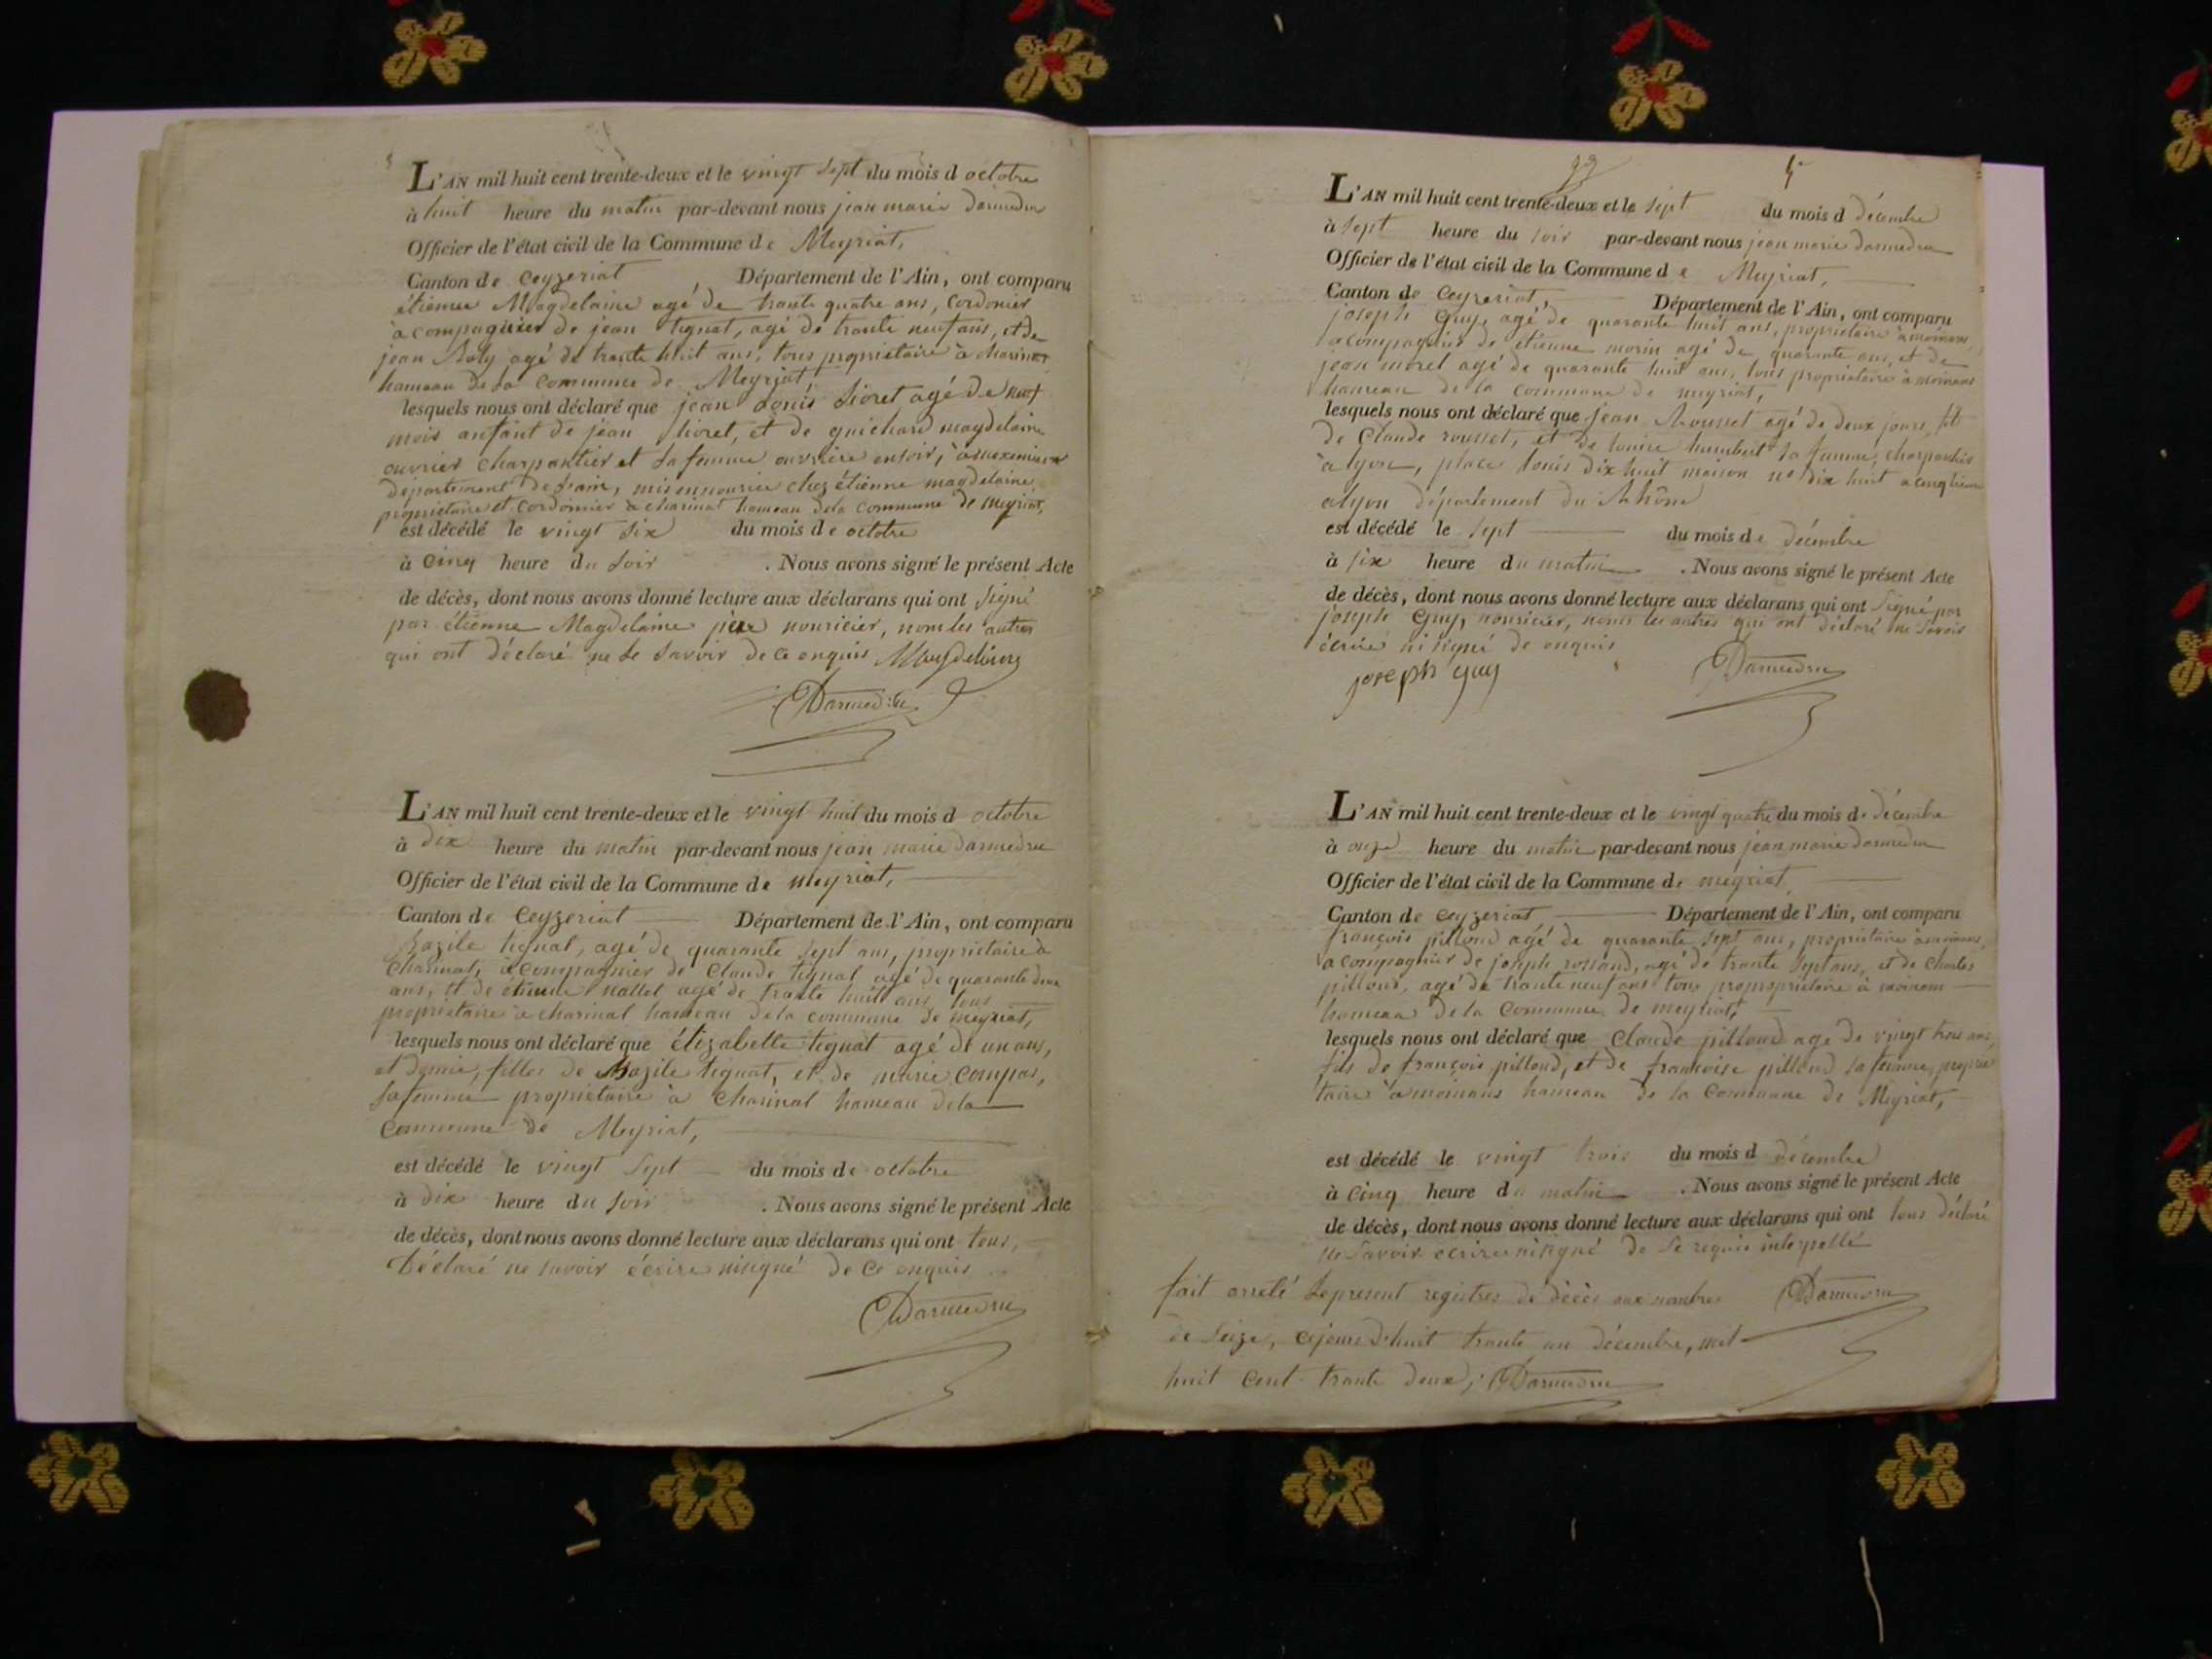 L'AN mil huit cent trente-deux et le vingt sept du mois d octobre
à huit heure du matin par-devant nous jean marie darmedru
Officier de l'état civil de la Commune de Meyriat,
Canton de Ceyzeriat Département de l'Ain, ont comparu
étienne Magdelaine agé de trante quatre ans, Cordonier
à compagnier de jean tignat, agé de trante neuf ans, et de
jean Roly agé de trante huit ans, tous propriétaire à charinat
hameau de la commune de Meyriat,
lesquels nous ont déclaré que jean Louis Lioret agé de neuf
mois anfant de jean Lioret, et de guichard magdelaine
ouvrier charpantier et sa femme ouvriere ensoir, à
département de l'ain, mis en nourice chez étienne magdelaine
propriétaire et cordonnier à charinat hameau de la commune de Meyriat,
est décédé le vingt six du mois de octobre
à cinq heure du soir . Nous avons signé le présent Acte
de décès, dont nous avons donné lecture aux déclarans qui ont signé
par étienne Magdelaine père nouricier, nom les autres
qui ont déclaré ne le savoir de ce enquis Magdelaine
Darmedru
L'AN mil huit cent trente-deux et le vingt huit du mois d octobre
à dix heure du matin par-devant nous jean marie darmedru
Officier de l'état civil de la Commune de meyriat,
Canton de Ceyzeriat Département de l'Ain, ont comparu
Bazile tignat, agé de quarante sept ans, propriétaire à
charinat, à compagnier de Claude tignat agé de quarante deux
ans, et de étienne nallet agé de trante huit ans, tous
propriétaire à charinat hameau de la commune de meyriat,
lesquels nous ont déclaré que élizabette tignat agé de un ans,
et demie, filles de Bazile tignat, et de marie Compas,
sa femme propriétaire à Charinat hameau de la
Commune de Meyriat,
est décédé le vingt sept du mois de octobre
à dix heure du soir . Nous avons signé le présent Acte
de décès, dont nous avons donné lecture aux déclarans qui ont tous,
Déclaré ne savoir écrire nisigné de ce enquis
Darmedru
5
L'AN mil huit cent trente-deux et le sept du mois d décembre
à sept heure du soir par-devant nous jean marie darmedru
Officier de l'état civil de la Commune de Meyriat,
Canton de Ceyzeriat, Département de l'Ain, ont comparu
joseph Guy, agé de quarante huit ans, propriétaire à moinans,
acompagnier de étienne morin agé de quarante ans, et de
jean morel agé de quarante huit ans, tous propriétaire à moinans
hameau de la commune de meyriat,
lesquels nous ont déclaré que jean Rousset agé de deux jours, fils
de Claude rousset, et de louise humbert sa femme, charpantier
à lyon, place louis dix huit maison no dix huit
alyon département du Rhône
est décédé le sept du mois de décembre
à six heure du matin . Nous avons signé le présent Acte
de décès, dont nous avons donné lecture aux déclarans qui ont signé par
joseph Guy, nouricier, nom les autres qui ont déclaré ne savoir
écrire ni signé de enquis
joseph guy Darmedru
L'AN mil huit cent trente-deux et le vingt quatre du mois de décembre
à onze heure du matin par-devant nous jean marie darmedru
Officier de l'état civil de la Commune de meyriat
Canton de Ceyzeriat Département de l'Ain, ont comparu
françois pilloud agé de quarante sept ans, propriétaire à moinans,
acompagnier de joseph rolland, agé de trante sept ans, et de Charles
pilloud, agé de trante neuf ans tous propropriétaire à moinans
hameau de la Commune de meyriat,
lesquels nous ont déclaré que Claude pilloud agé de vingt trois ans,
fils de françois pilloud, et de françoise pilloud sa femme, proprié
taire à moinans hameau de la Commune de Meyriat,
est décédé le vingt trois du mois d décembre
à cinq heure du matin . Nous avons signé le présent Acte
de décès, dont nous avons donné lecture aux déclarans qui ont tous déclaré
ne savoir écrire nisigné de se requis interpellé
fait arreté le present registres de décès aux nombres Darmedru
de seize, cejourd'huit trante un décembre, mil
huit cent trante deux, Darmedru